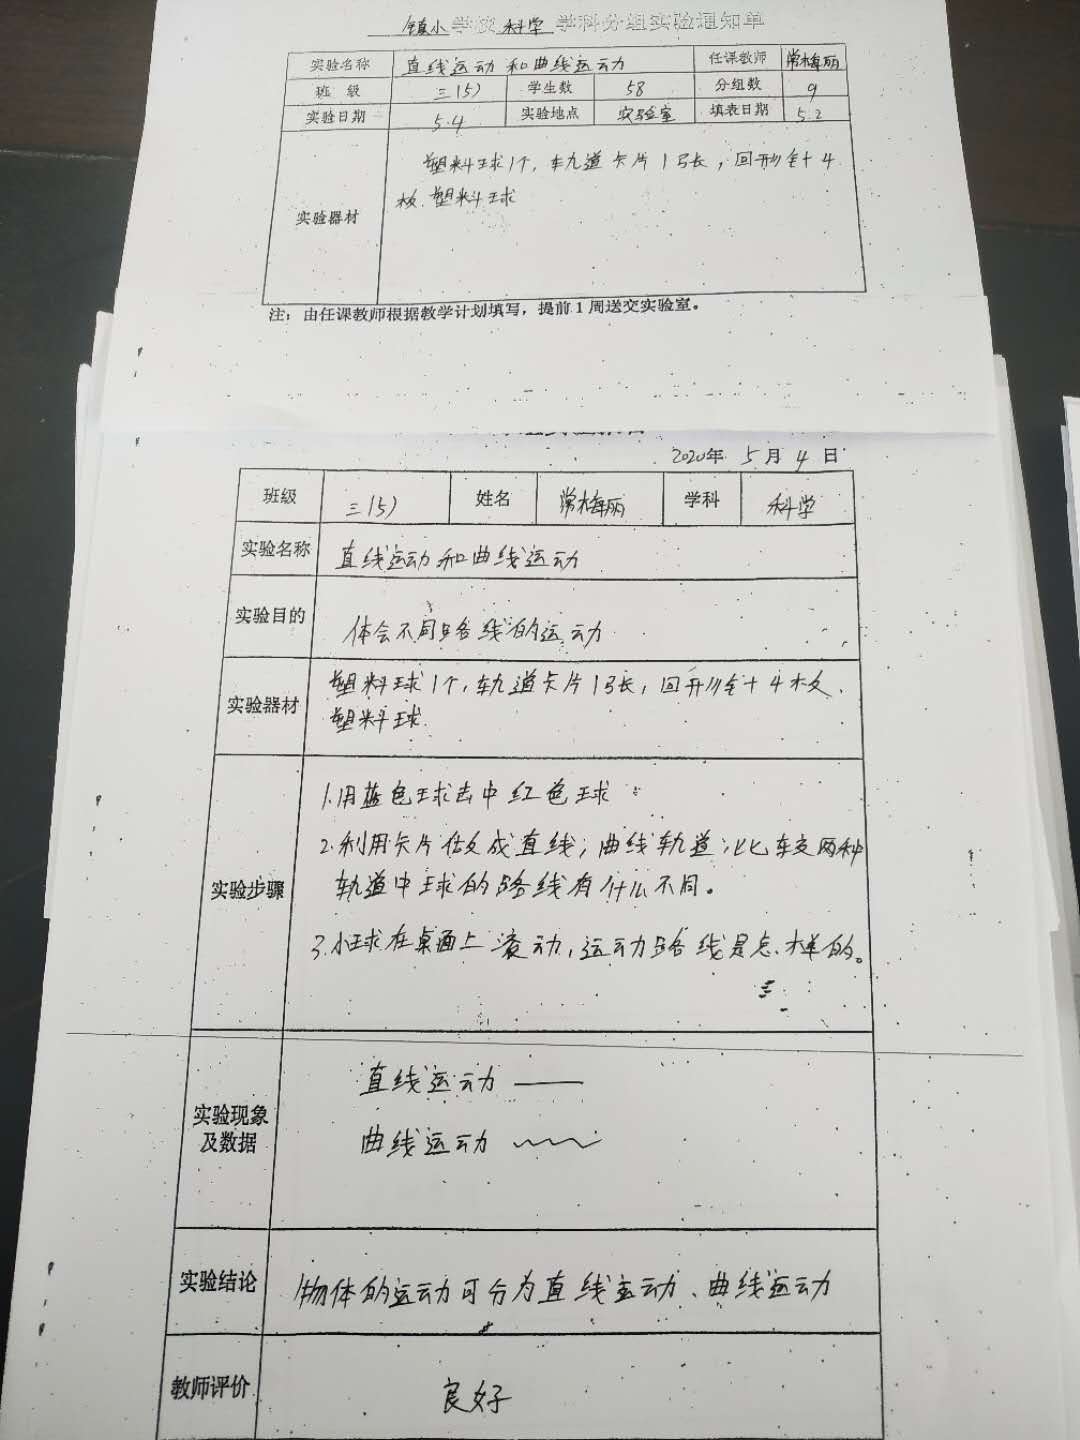 镇小学校科学学科分组实验通知单
实验名称 直线运动和曲线运动 任课教师 常梅丽
班 级 三(5) 学生数 58 分组数 9
实验日期 5.4 实验地点 实验室 填表日期 5.2
实验器材 塑料球1个,轨道卡片1张,回形针4
枚.塑料球
注:由任课教师根据教学计划填写,提前1周送交实验室。
2020年 5月4日
班级 三(5) 姓名 常梅丽 学科 科学
实验名称 直线运动和曲线运动
实验目的 体会不同路线的运动
实验器材 塑料球1个,轨道卡片1张,回形针4枚、
塑料球
实验步骤 1.用蓝色球击中红色球
2.利用卡片做成直线;曲线轨道;比较两种
轨道中球的路线有什么不同。
3.小球在桌面上滚动,运动路线是怎样的。
实验现象
及数据
直线运动
曲线运动
实验结论 物体的运动可分为直线运动、曲线运动
教师评价 良好